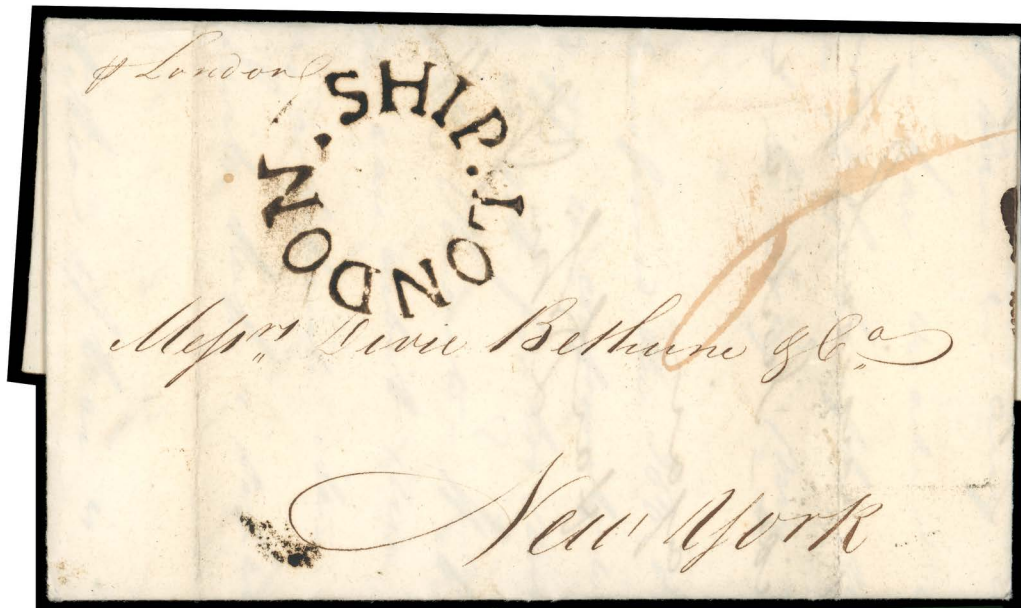 ⅌ London
SHIP. LONDON.
Messrs Divie Bethune & Co
New York